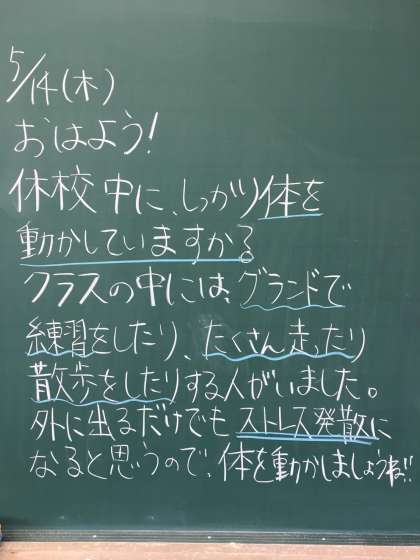 5/14(木)
おはよう!
休校中に、しっかり体を
動かしていますか?
クラスの中には、グランドで
練習をしたり、たくさん走ったり
散歩をしたりする人がいました。
外に出るだけでもストレス発散に
なると思うので、体を動かしましょうね!!